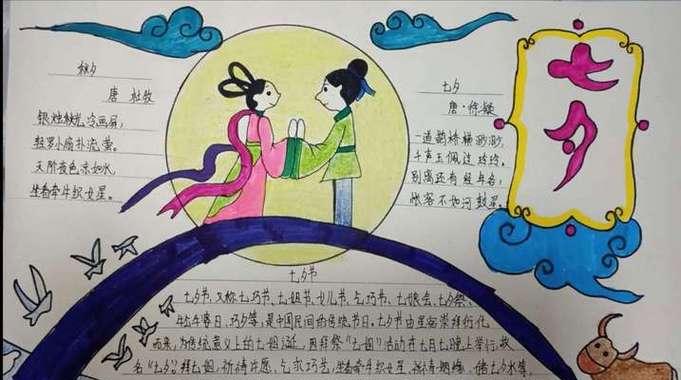 七夕
秋夕
唐 杜牧
银烛秋光冷画屏,
轻罗小扇扑流萤。
天阶夜色凉如水,
坐看牵牛织女星。
七夕
唐·徐凝
一道鹊桥横渺渺,
千声玉佩过玲玲。
别离还有经年客,
怅客不如河鼓星。
七夕节
七夕节,又称七巧节、七姐节、女儿节、乞巧节、七娘会、七夕祭、
牛公牛婆日、巧夕等,是中国民间的传统节日。七夕节由星宿崇拜衍化
而来,为传统意义上的七姐诞,因拜祭“七姐”活动在七月七晚上举行,故
名“七夕”。拜七姐,祈祷许愿、乞求巧艺,坐看牵牛织女星、祈祷姻缘、储七夕水等,